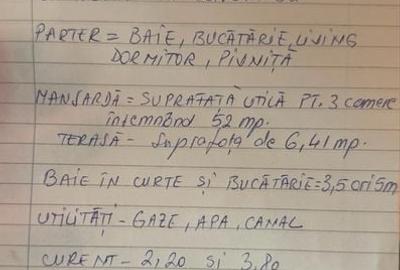 PARTER = BAIE, BUCĂTĂRIE, LIVING
DORMITOR, PIVNIȚĂ
MANSARDĂ = SUPRAFAȚA UTILĂ PT. 3 camere
însemnând 52 mp.
TERASĂ - Suprafața de 6,41 mp.
BAIE ÎN CURTE ȘI BUCĂTĂRIE = 3,5 ori 5m
UTILITĂȚI - GAZE, APA, CANAL
CURENT - 2,20 și 3,80